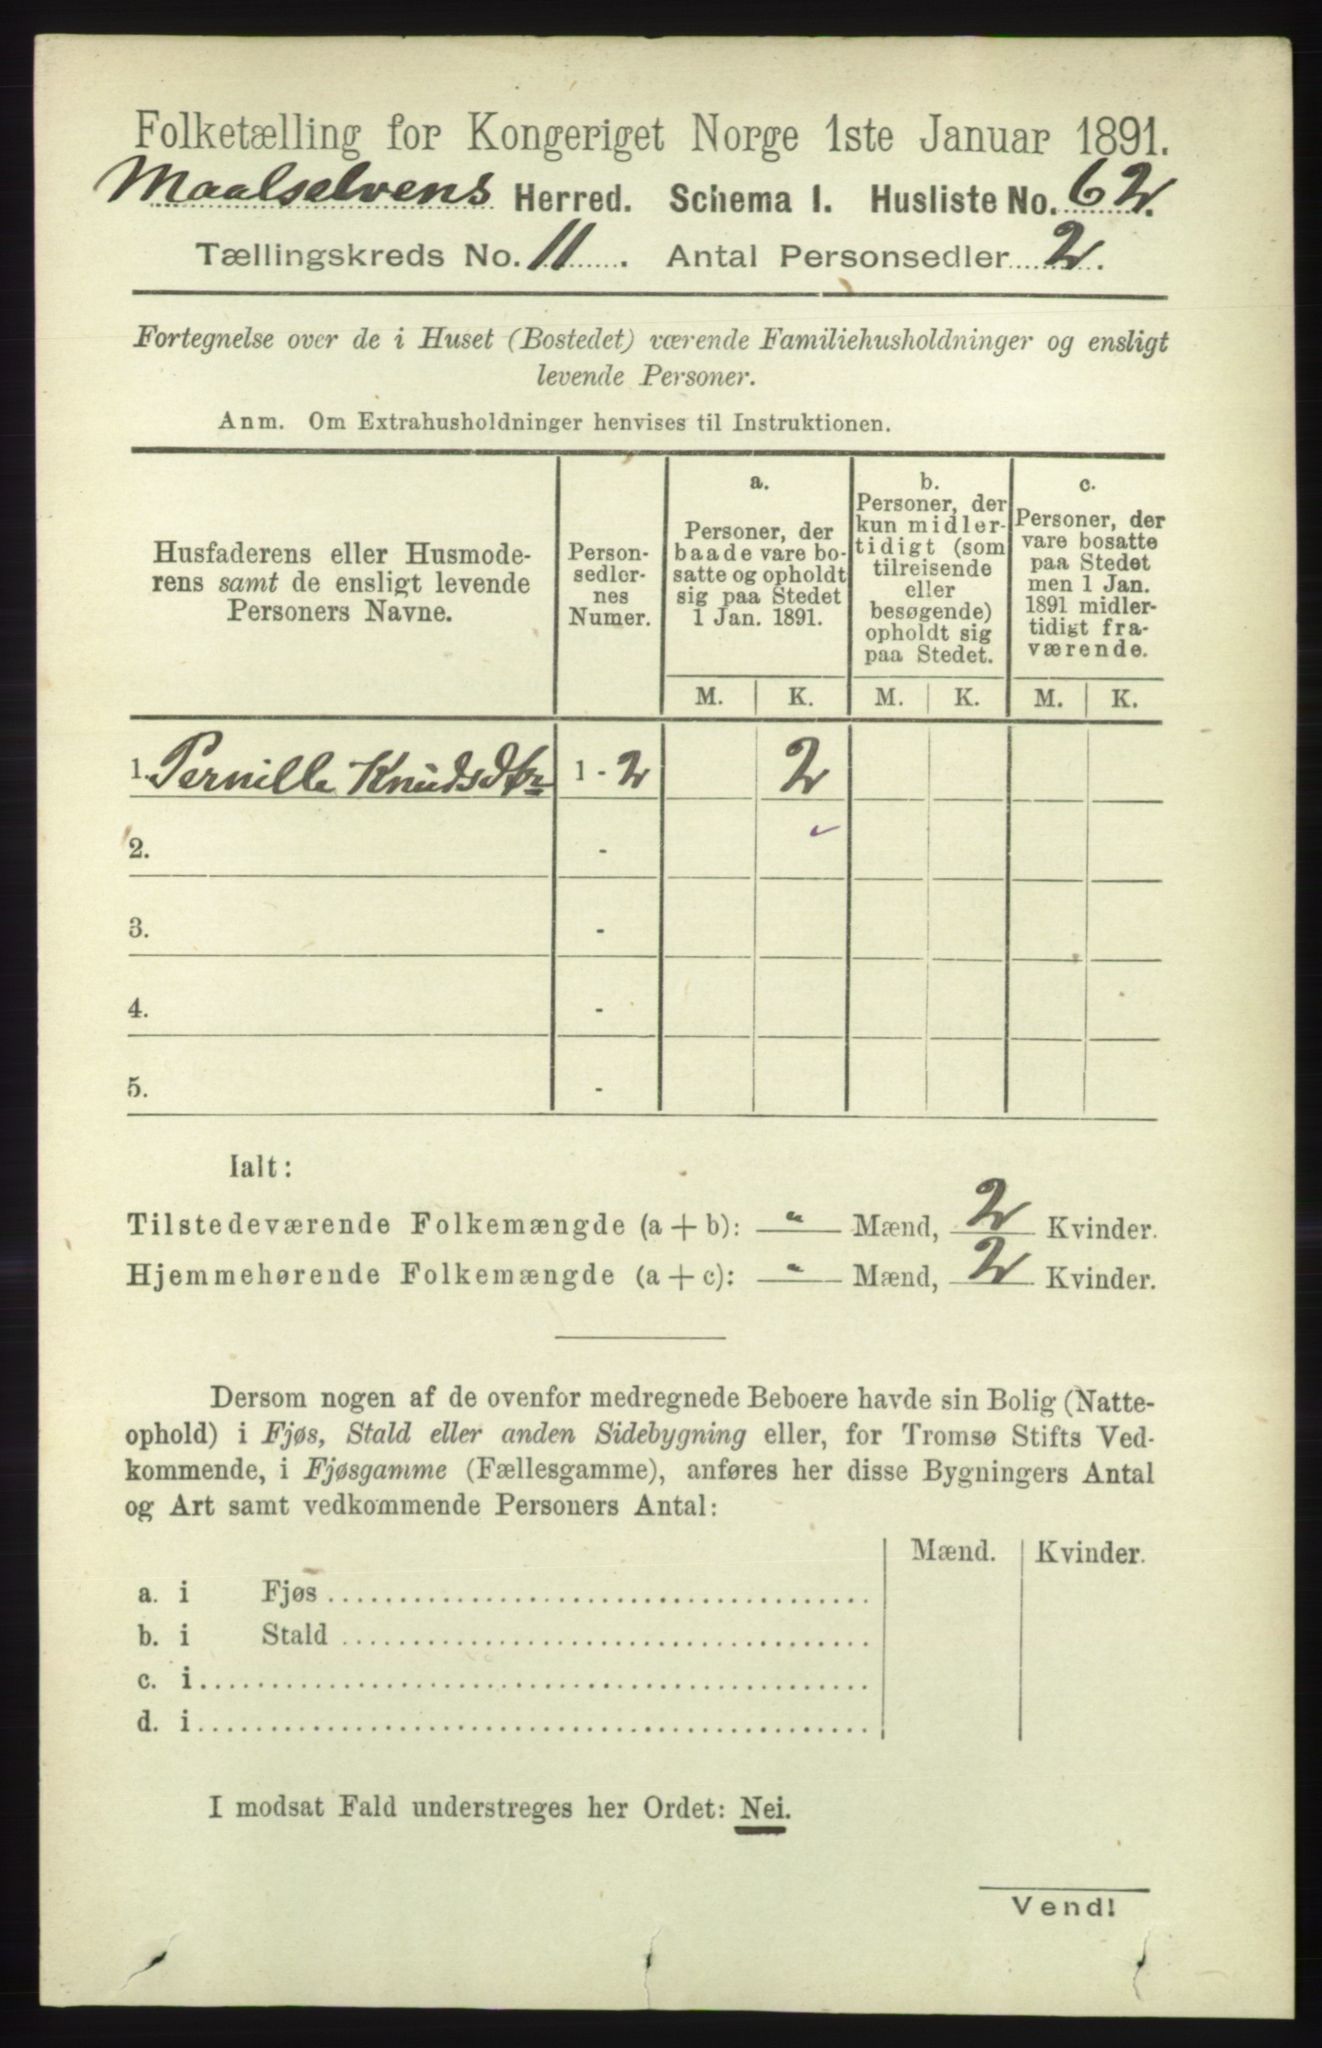 Folketælling for Kongeriget Norge 1ste Januar 1891.
Maalselvens Herred. Schema 1. Husliste No. 62.
Tællingskreds No. 11. Antal Personsedler 2.
Fortegnelse over de i Huset (Bostedet) værende Familiehusholdninger og ensligt
levende Personer.
Anm. Om Extrahusholdninger henvises til Instruktionen.
Husfaderens eller Husmode-
rens samt de ensligt levende
Personers Navne.
Person-
sedler-
nes
Numer.
a.
Personer, der
baade vare bo-
satte og opholdt
sig paa Stedet
1 Jan. 1891.
b.
Personer, der
kun midler-
tidigt (som
tilreisende
eller
besøgende)
opholdt sig
paa Stedet.
c.
Personer, der
vare bosatte
paa Stedet
men 1 Jan.
1891 midler-
tidigt fra-
værende.
M. K. M. K. M. K.
1. Pernille Knudsdtr 1 - 2 2
2. -
3. -
4. -
5. -
Ialt:
Tilstedeværende Folkemængde (a + b): " Mænd, 2 Kvinder.
Hjemmehørende Folkemængde (a + c): " Mænd, 2 Kvinder.
Dersom nogen af de ovenfor medregnede Beboere havde sin Bolig (Natte-
ophold) i Fjøs, Stald eller anden Sidebygning eller, for Tromsø Stifts Ved-
kommende, i Fjøsgamme (Fællesgamme), anføres her disse Bygningers Antal
og Art samt vedkommende Personers Antal:
Mænd. Kvinder.
a. i Fjøs
b. i Stald
c. i
d. i
I modsat Fald understreges her Ordet: Nei.
Vend!